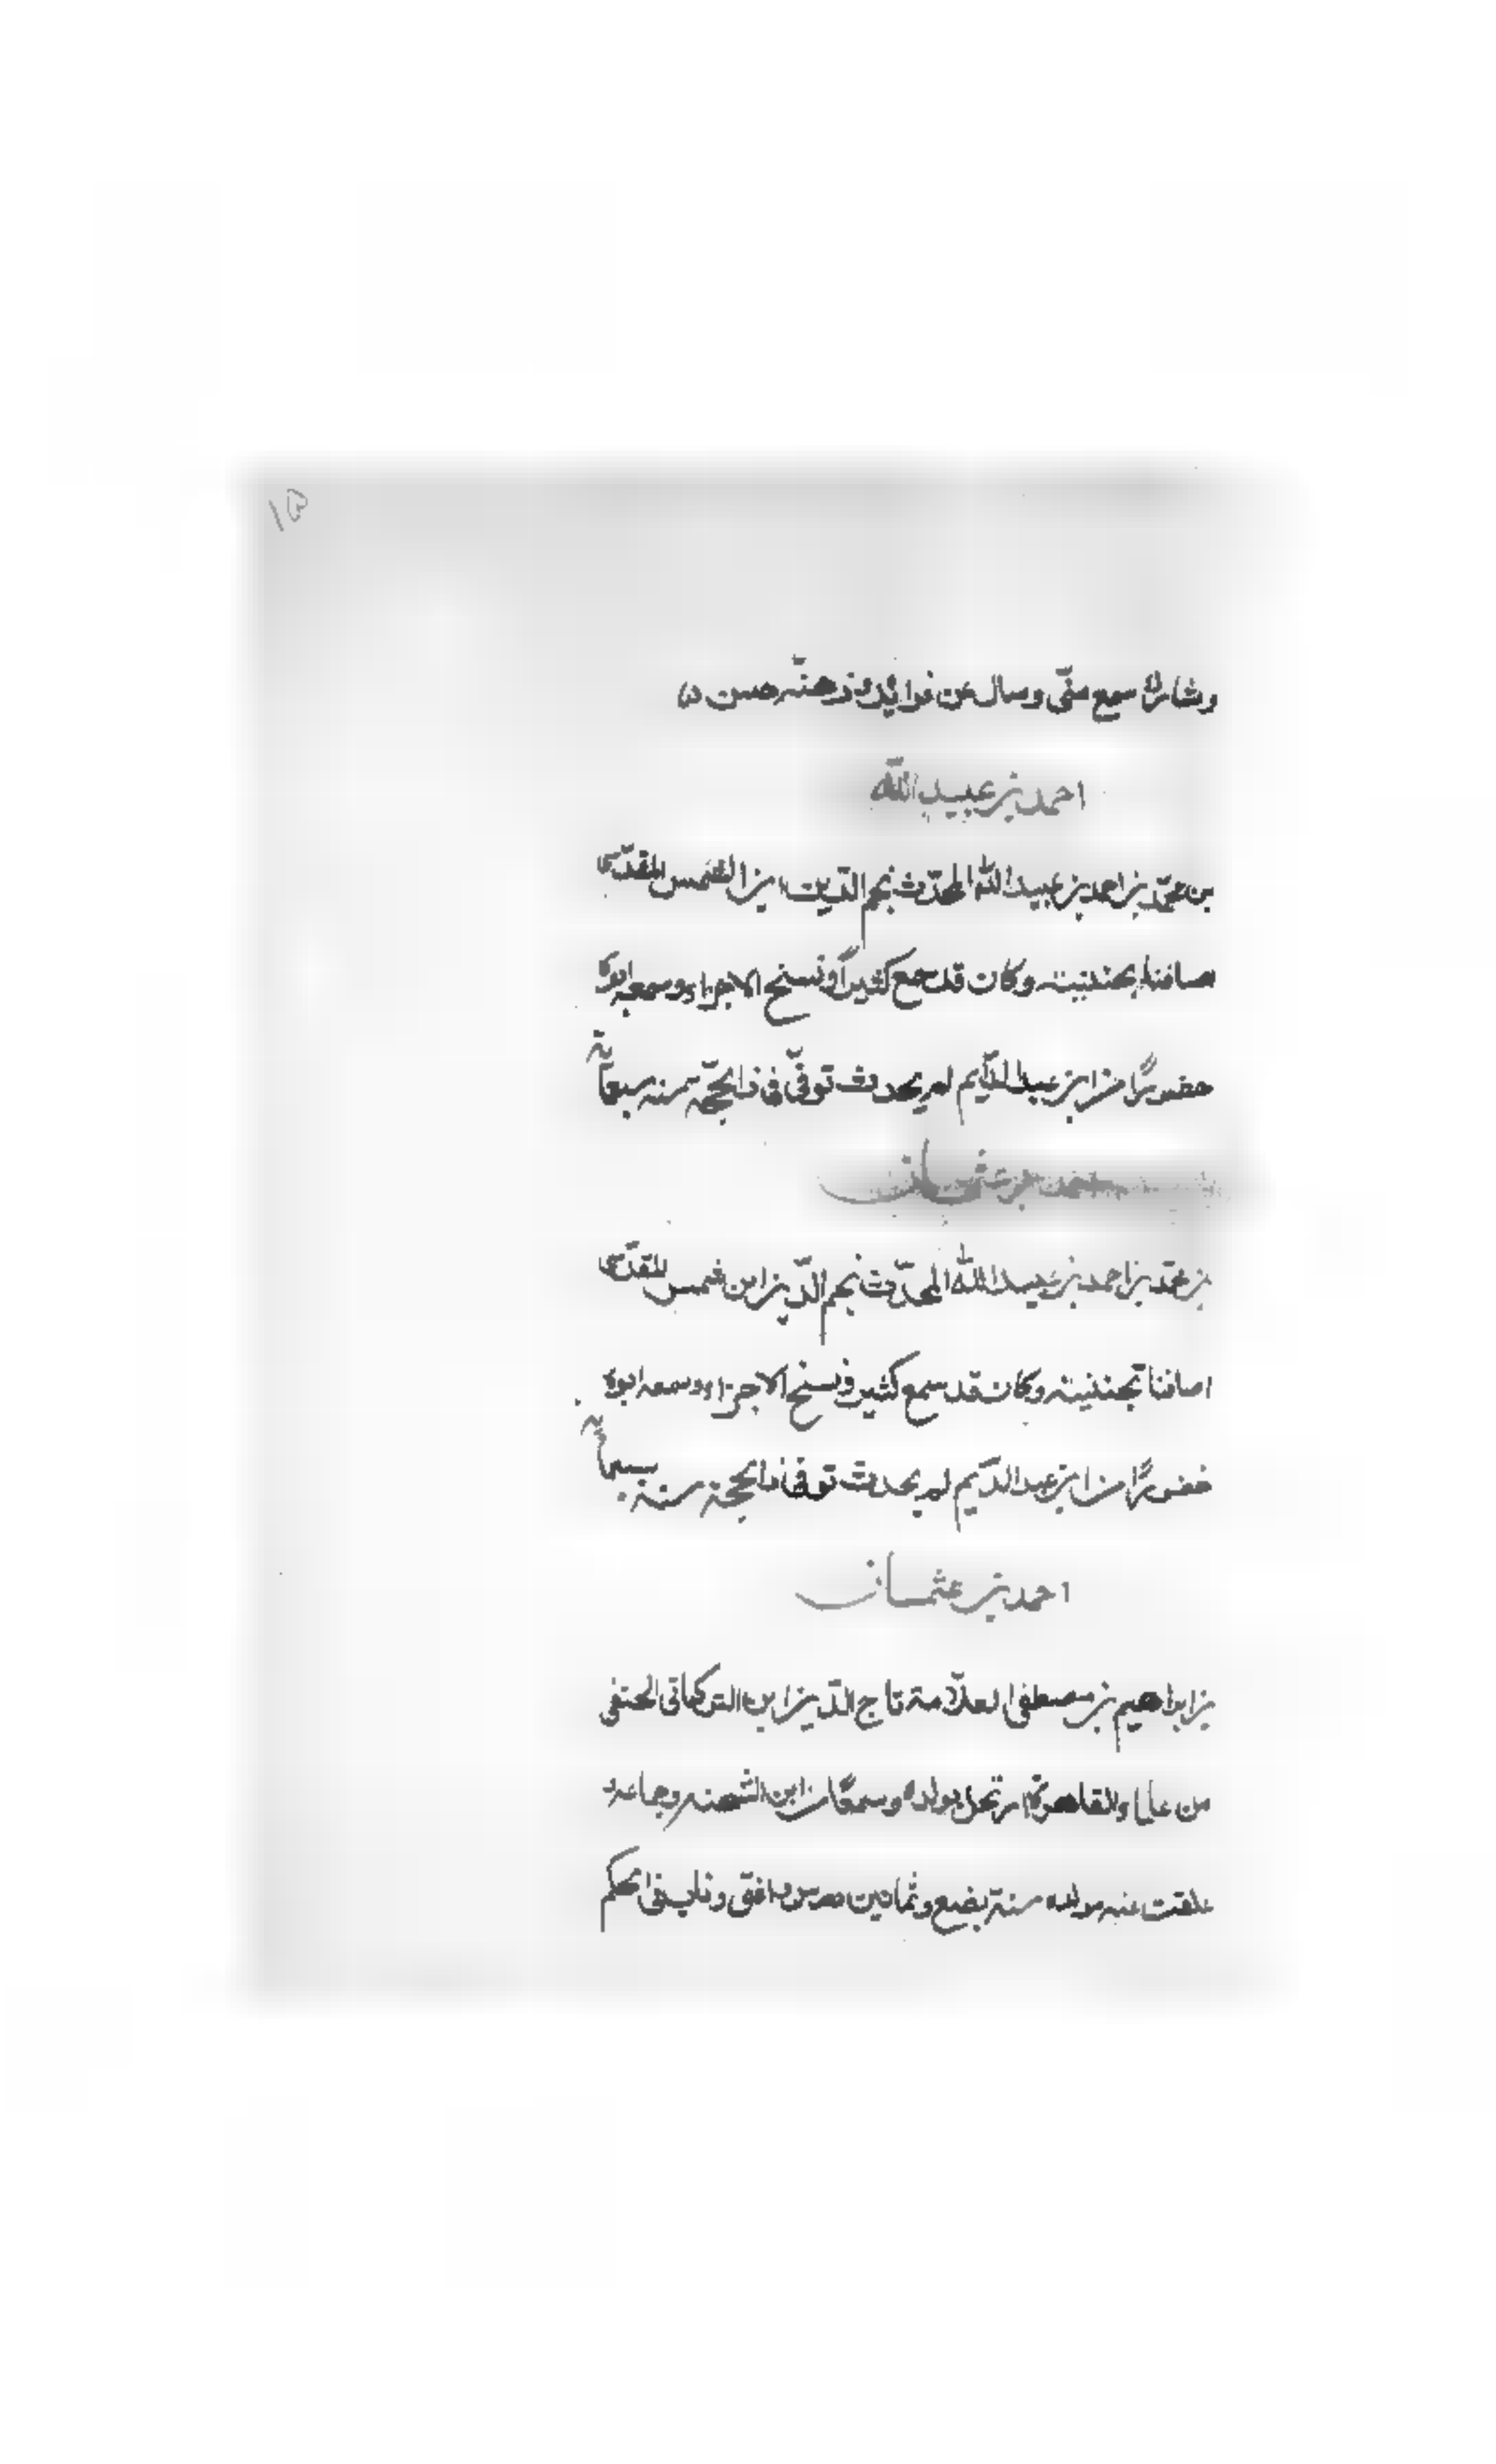 ١٥
وشارك سمع منّي وسال عن فوائد وذهنه حسن
احمد بن عبيد الله
بن محمّد بن احمد بن عبيد الله المحدّث نجم الدّين ابن الشمس المقدّسى
بجنينته وكان قد سمع كثيراً ونسخ الاجزاء وسمعه ابوه
حضورًا من ابن عبد الدّايم لم يحدث توفّي في ذا الحجّة سنة سبعمائة
احمد بن عثمان
بن محمد بن احمد بن عبيد الله المحدّث نجم الدّين ابن شمس المقدّسى
بجنينته وكان قد سمع كثير ونسخ الاجزاء وسمعه ابوه
حضورًا من ابن عبد الدّيم لم يحدث توفى ذا الحجة سنة سبعمائة
احمد بن عثمان
بن ابراهيم بن مصطفى العلّامة تاج الدّين ابن التركمانى الحنفى
من علماء القاهرة ارتحل بولده وسمعا من ابن الشحنه وجماعة
علقت عنه مولده سنة بضع وثمانين درس وافتى وناب فى الحكم